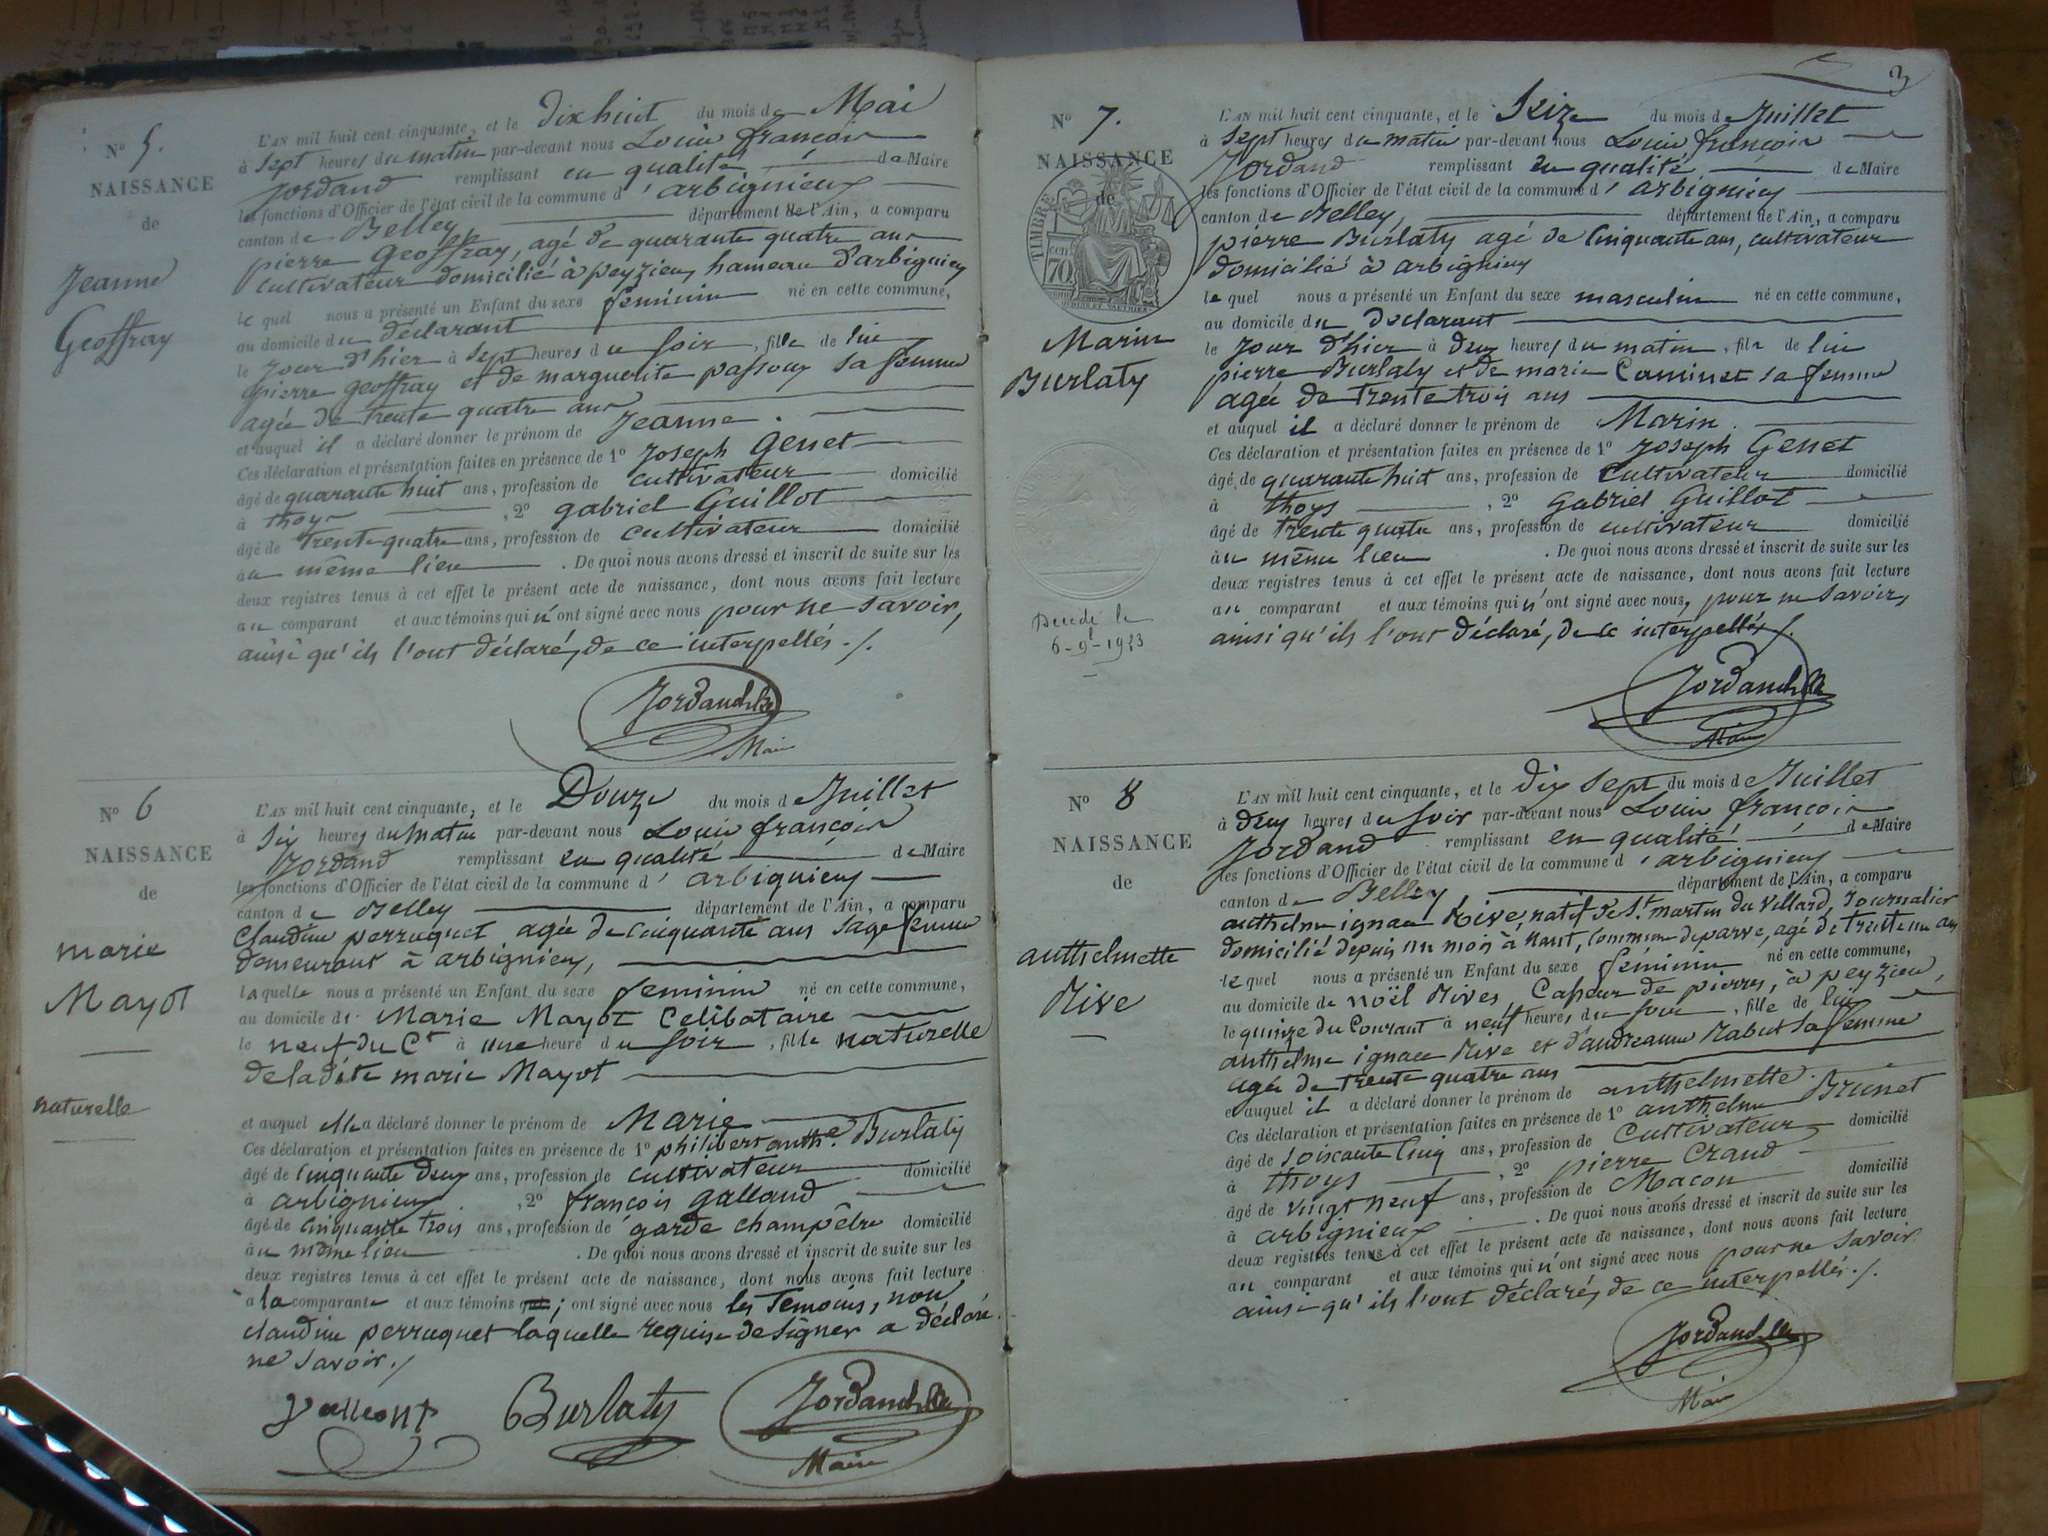 N° 5.
NAISSANCE
de
Jeanne
Geoffray
L'AN mil huit cent cinquante, et le Dix huit du mois de Mai
à Sept heures du matin par-devant nous Louis françois
Jordand remplissant en qualité de Maire
les fonctions d'Officier de l'état civil de la commune d'arbignieux
canton de Belley département de l'Ain, a comparu
pierre Geoffray, agé de quarante quatre ans
cultivateur domicilié à peyzieu, hameau d'arbignieu
lequel nous a présenté un Enfant du sexe feminin né en cette commune,
au domicile du déclarant
le Jour d'hier à Sept heures du soir, fille de lui
pierre geoffray et de marguerite passoux sa femme
agée de trente quatre ans
et auquel il a déclaré donner le prénom de Jeanne.
Ces déclaration et présentation faites en présence de 1° Joseph Genet
âgé de quarante huit ans, profession de cultivateur domicilié
à thoys , 2° gabriel Guillot
âgé de trente quatre ans, profession de cultivateur domicilié
au même lieu . De quoi nous avons dressé et inscrit de suite sur les
deux registres tenus à cet effet le présent acte de naissance, dont nous avons fait lecture
au comparant et aux témoins qui n'ont signé avec nous pour ne savoir,
ainsi qu'ils l'ont déclaré, de ce interpellés ./.
Jordand
Maire
N° 6
NAISSANCE
de
marie
Mayot
naturelle
L'AN mil huit cent cinquante, et le Douze du mois de Juillet
à Six heures du matin par-devant nous Louis françois
Jordand remplissant en qualité de Maire
les fonctions d'Officier de l'état civil de la commune d' arbignieu
canton de Belley département de l'Ain, a comparu
Claudine perruquet agée de cinquante ans sage femme
demeurant à arbignieu,
laquelle nous a présenté un Enfant du sexe feminin né en cette commune,
au domicile de Marie Mayot Celibataire
le neuf du Ct à une heure du soir, fille naturelle
de la dite marie Mayot
et auquel elle a déclaré donner le prénom de Marie
Ces déclaration et présentation faites en présence de 1° philibert anthe Burlaty
âgé de cinquante deux ans, profession de cultivateur domicilié
à arbignieu , 2° françois galland
âgé de cinquante trois ans, profession de garde champêtre domicilié
au même lieu . De quoi nous avons dressé et inscrit de suite sur les
deux registres tenus à cet effet le présent acte de naissance, dont nous avons fait lecture
à la comparante et aux témoins qui; ont signé avec nous les Temoins, non
claudine perruquet laquelle requise de signer a déclaré
ne savoir./
Burlaty
Jordand
Maire
3
N° 7.
NAISSANCE
de
TIMBRE
70 CEN
Marin
Burlaty
Décédé le
L'AN mil huit cent cinquante, et le Seize du mois de Juillet
à Sept heures du matin par-devant nous Louis françois
Jordand remplissant en qualité de Maire
les fonctions d'Officier de l'état civil de la commune d' arbignieu
canton de Belley, département de l'Ain, a comparu
pierre Burlaty agé de Cinquante ans, cultivateur
domicilié à arbignieu
lequel nous a présenté un Enfant du sexe masculin né en cette commune,
au domicile du declarant
le Jour d'hier à deux heures du matin, fils de lui
pierre Burlaty et de marie Caminet sa femme
agée de trente trois ans
et auquel il a déclaré donner le prénom de Marin.
Ces déclaration et présentation faites en présence de 1° Joseph Genet
âgé de quarante huit ans, profession de Cultivateur domicilié
à thoys , 2° gabriel Guillot
âgé de trente quatre ans, profession de cultivateur domicilié
au même lieu . De quoi nous avons dressé et inscrit de suite sur les
deux registres tenus à cet effet le présent acte de naissance, dont nous avons fait lecture
au comparant et aux témoins qui n'ont signé avec nous, pour ne savoir,
ainsi qu'ils l'ont déclaré, de ce interpellés./.
Jordand
Maire
N° 8
NAISSANCE
de
anthelmette
Rive
L'AN mil huit cent cinquante, et le dix sept du mois de Juillet
à deux heures du soir par-devant nous Louis françois
Jordand remplissant en qualité de Maire
les fonctions d'Officier de l'état civil de la commune d'arbignieu
canton de Belley département de l'Ain, a comparu
anthelme ignace Rive, natif de St martin du Villard, Journalier
domicilié depuis un mois à nant, commune de parve, agé de trente un ans
lequel nous a présenté un Enfant du sexe féminin né en cette commune,
au domicile de noël Rives, Casseur de pierres, à peyzieu,
le quinze du Courant à neuf heures du soir, fille de lui
anthelme ignace Rive et d'andreanne Rabut sa femme
agée de trente quatre ans
et auquel il a déclaré donner le prénom de anthelmette.
Ces déclaration et présentation faites en présence de 1° anthelme Brunet
âgé de soixante Cinq ans, profession de Cultivateur domicilié
à thoys , 2° pierre Crand
âgé de vingt neuf ans, profession de Macon domicilié
à arbignieux . De quoi nous avons dressé et inscrit de suite sur les
deux registres tenus à cet effet le présent acte de naissance, dont nous avons fait lecture
au comparant et aux témoins qui n'ont signé avec nous pour ne savoir
ainsi qu'ils l'ont déclaré, de ce interpellés ./.
Jordand
Maire